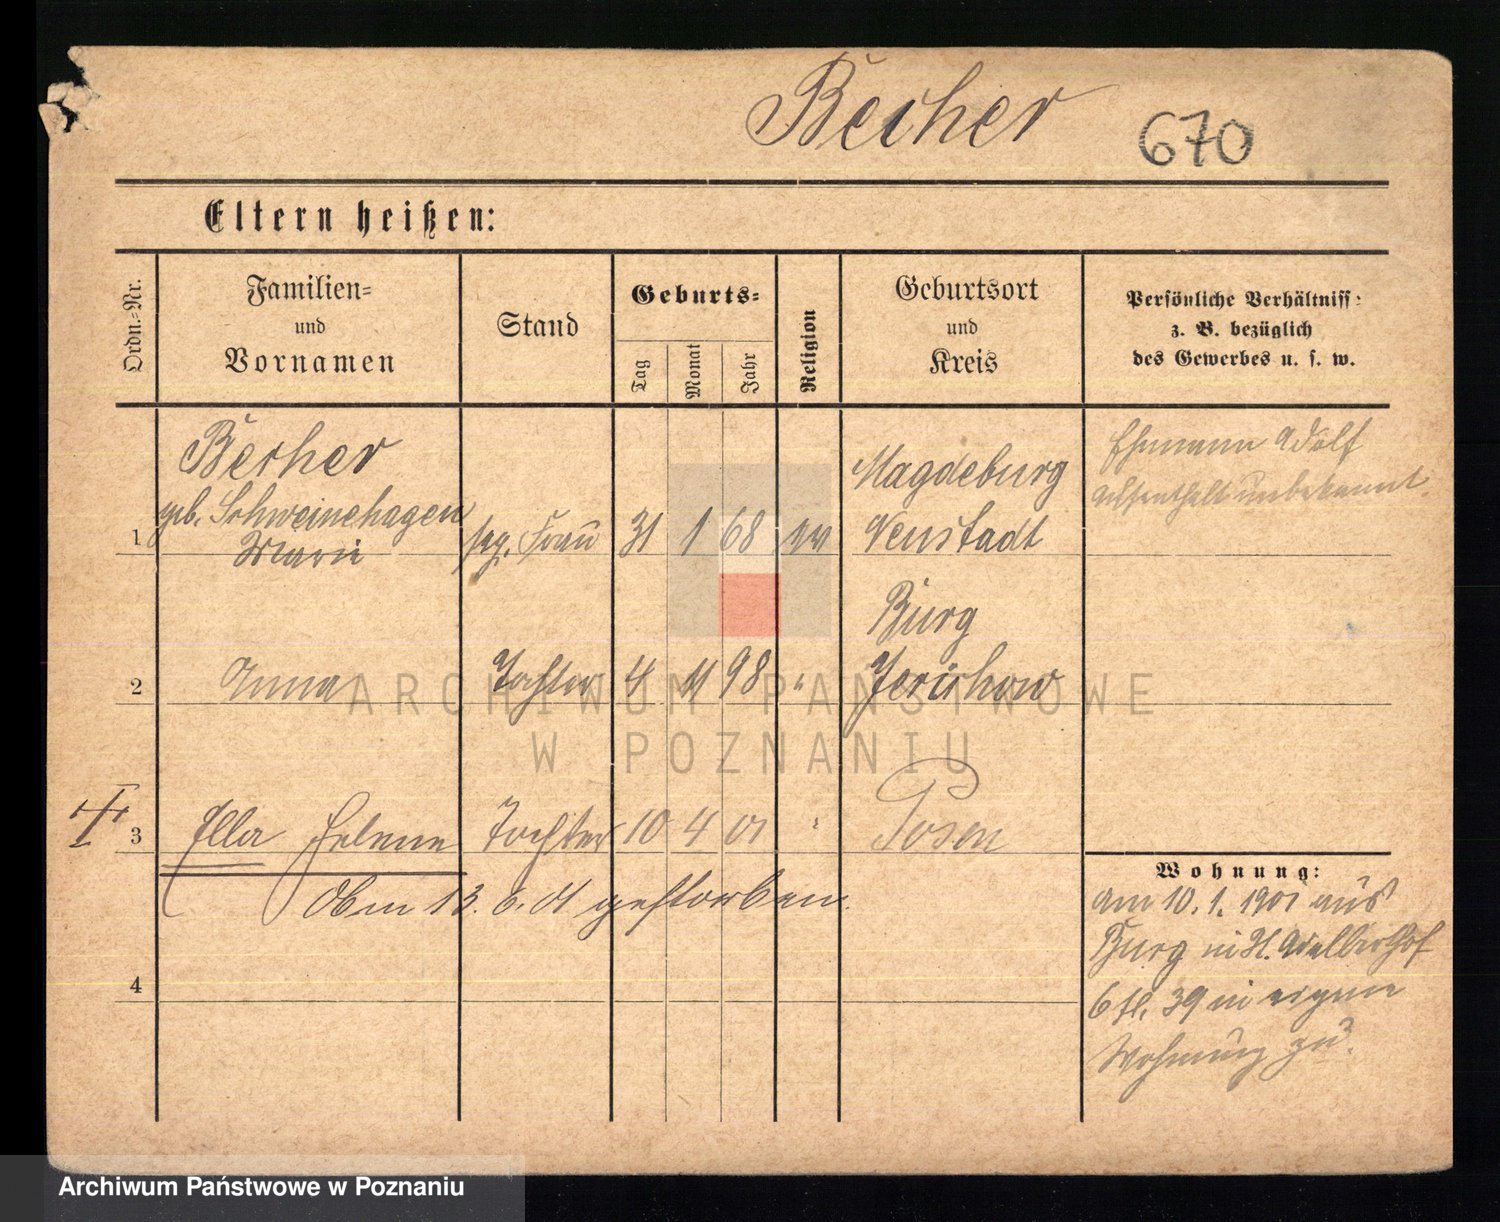 Becher 670
Eltern heißen:
Ordn.-Nr.
Familien-
und
Vornamen
Stand
Geburts-
Tag
Monat
Jahr
Religion
Geburtsort
und
Kreis
Persönliche Verhältniss
z. B. bezüglich
des Gewerbes u. s. w.
Becher
geb. Schweinehagen
1 Marie Frau 31 1 68 ev
Magdeburg
Neustadt
Ehemann Adolf
unbekannt
2 Anna Tochter 4 11 98 "
Burg
Jerichow
3 Ella Helene Tochter 10 4 01 "
Posen
Oben 13. 6. 01 gestorben.
4
Wohnung:
am 10. 1. 1901 aus
Burg in
39 in eigene
Wohnung zu.
ARCHIWUM PAŃSTWOWE
W POZNANIU
Archiwum Państwowe w Poznaniu